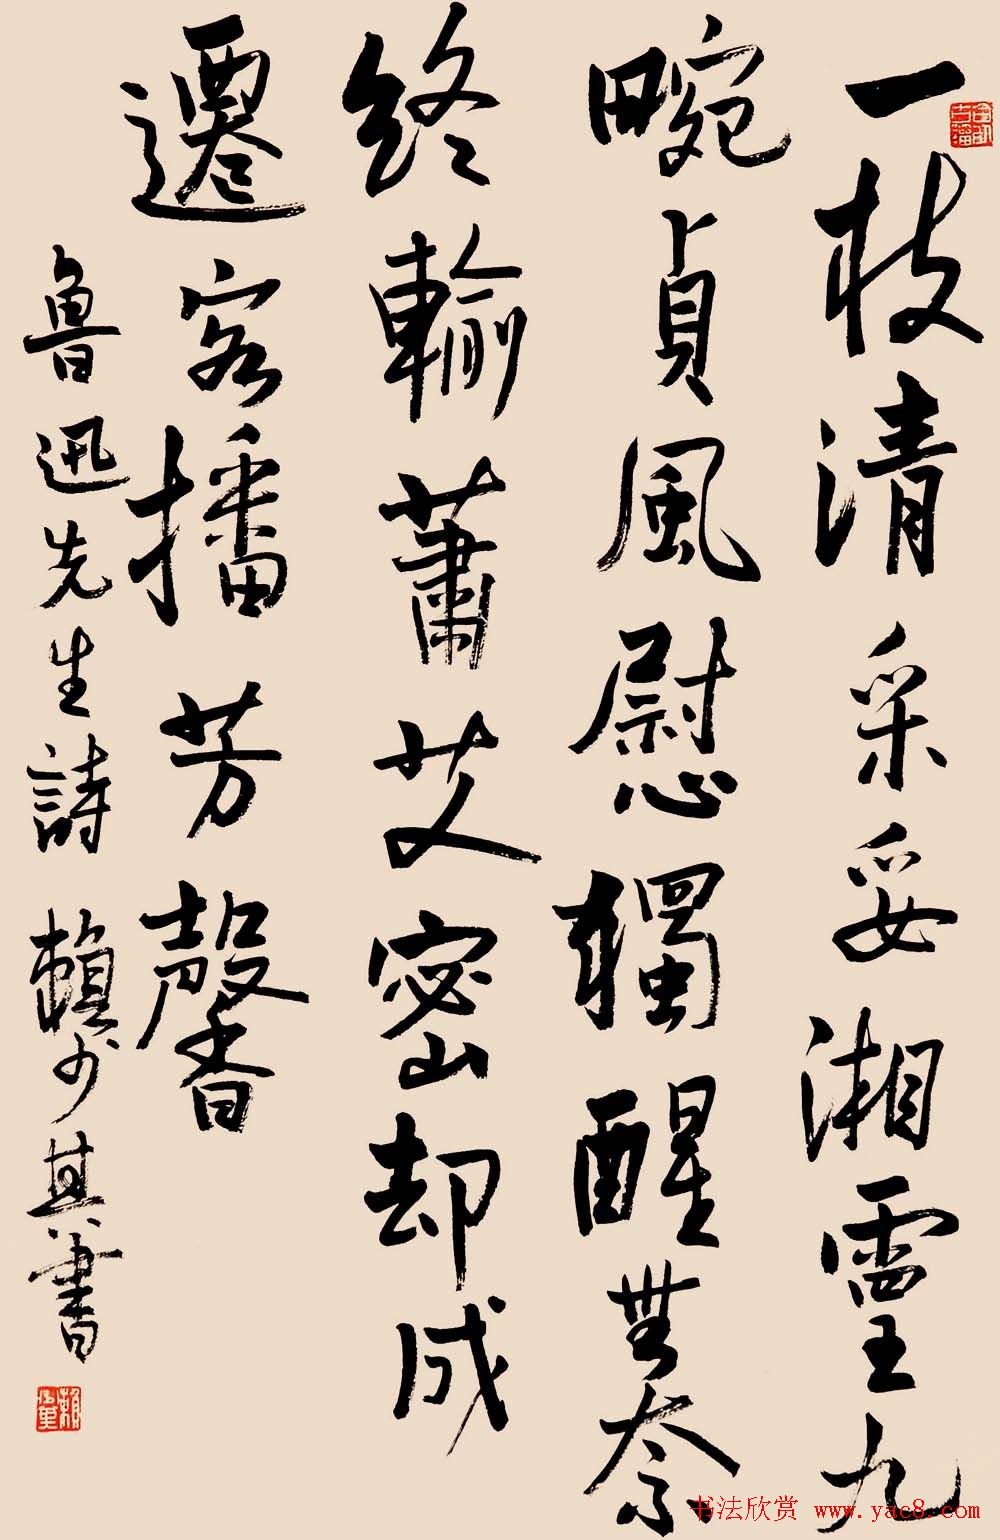 一枝清采妥湘靈九
畹貞風慰獨醒無奈
終輸蕭艾密却成
遷客播芳馨
魯迅先生詩 賴少其書
书法欣赏 www.yac8.com